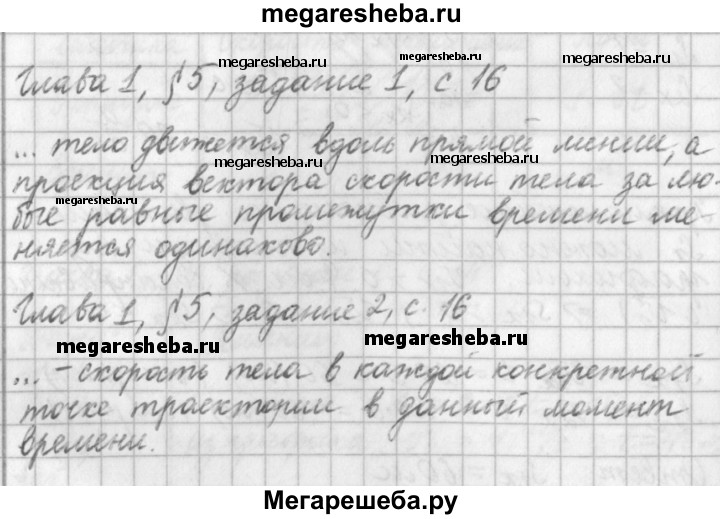 megaresheba.ru
megaresheba.ru
megaresheba.ru
Глава 1, § 5, задание 1, с. 16
... тело движется вдоль прямой линии, а
megaresheba.ru
megaresheba.ru
проекция вектора скорости тела за лю-
megaresheba.ru
бые равные промежутки времени ме-
няется одинаково.
Глава 1, § 5, задание 2, с. 16
megaresheba.ru
megaresheba.ru
... - скорость тела в каждой конкретной
точке траектории в данный момент
времени.
Мегарешеба.ру